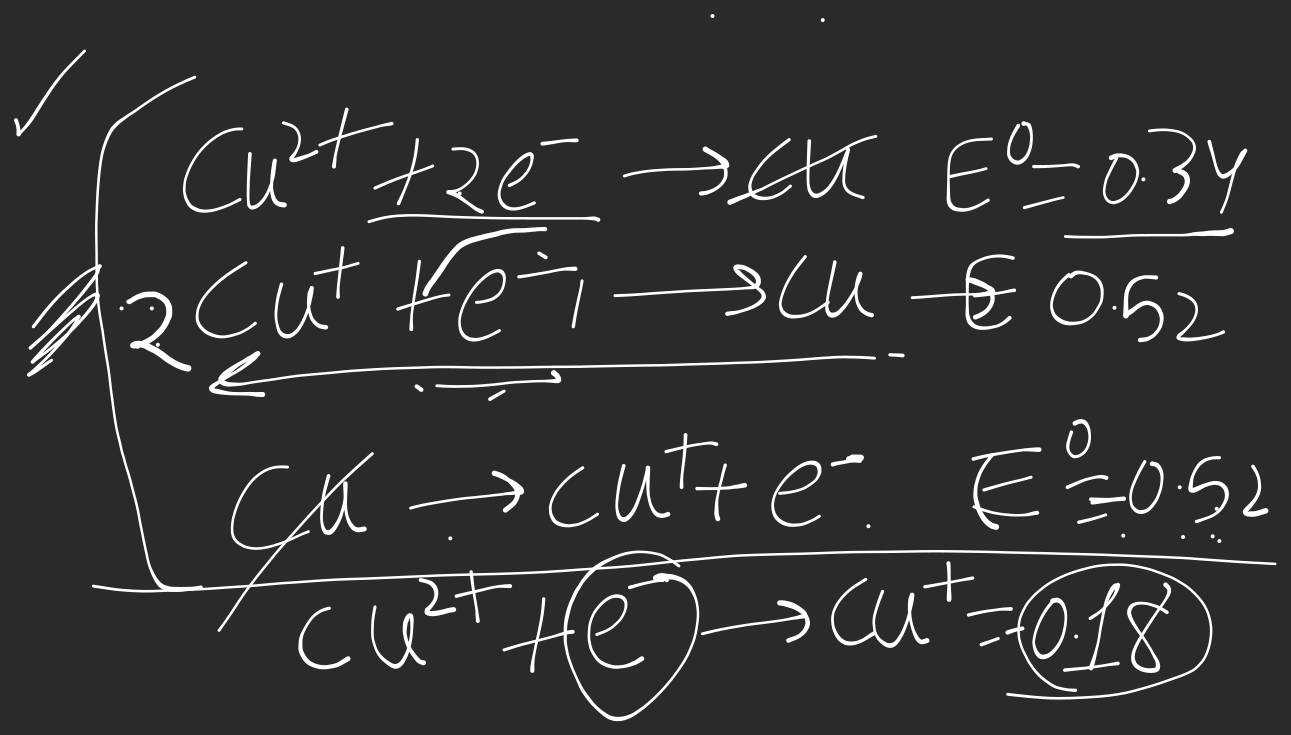 Cu²⁺ + 2e⁻ → Cu E⁰ = 0.34
2 Cu⁺ + e⁻ → Cu → E 0.52
Cu → Cu⁺ + e⁻ E⁰ = -0.52
Cu²⁺ + e⁻ → Cu⁺ = -0.18